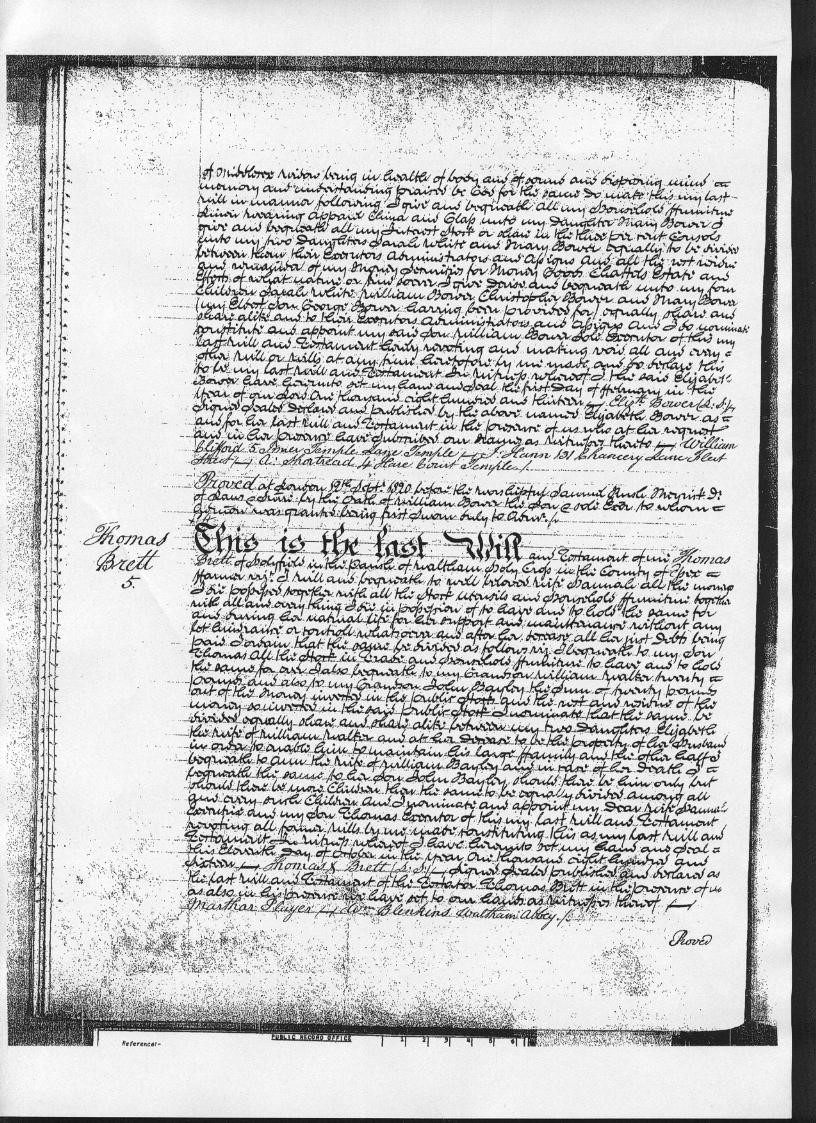 of Middlesex Widow being in health of body and of sound and disposing mind
memory and understanding praised be God for the same do make this my last
Will in manner following I give and bequeath all my Household Furniture
Linen wearing apparel China and Glass unto my Daughter Mary Bower I
give and bequeath all my Interest Stock or share in the three per cent Consols
unto my two Daughters Sarah White and Mary Bower equally to be divided
between them their Executors Administrators and Assigns and all the rest residue
and remainder of my Money Securities for Money Goods Chattels Estate and
Effects of what nature or kind soever I give devise and bequeath unto my four
Children Sarah White William Bower Christopher Bower and Mary Bower
(my Eldest Son George Bower having been provided for) equally share and
share alike and to their Executors Administrators and Assigns and I do nominate
constitute and appoint my said Son William Bower Sole Executor of this my
last Will and Testament hereby revoking and making void all and every
other Will or Wills at any time heretofore by me made and do declare this
to be my last Will and Testament In Witness whereof I the said Elizabeth
Bower have hereunto set my hand and Seal the first Day of February in the
Year of our Lord One thousand eight hundred and thirteen Elizth Bower (L:S:)
Signed Sealed Declared and published by the above named Elizabeth Bower as
and for her last Will and Testament in the presence of us who at her request
and in her presence have subscribed our Names as Witnesses thereto William
Clifford 5 Inner Temple Lane Temple J. Hann 131 Chancery Lane Fleet
Street A. Shortread 4 Hare Court Temple
Proved at London 12th Sept. 1820 before the Worshipful Samuel Rush Meyrick Dr
of Laws & Surr. by the Oath of William Bower the Son & sole Exor to whom
Admon was granted being first sworn duly to Admr
Thomas
Brett
5.
This is the last Will and Testament of me Thomas
Brett of Holyfield in the Parish of Waltham Holy Cross in the County of Essex
Farmer viz I will and bequeath to well beloved wife Hannah all the money
I die possessed together with all the Stock Utensils and Household Furniture together
with all and every thing I die in possession of to have and to hold the same for
and during her natural life for her support and maintenance without any
let hindrance or controll whatsoever and after her decease all her just Debts being
paid I ordain that the same be divided as follows viz I bequeath to my Son
Thomas all the Stock in Trade and Household Furniture to have and to hold
the same for ever I also bequeath to my Grandson William Walker twenty
pounds and also to my Grandson John Bayley the Sum of twenty pounds
out of the Money invested in the public Stock and the rest and residue of the
money so invested in the said Public Stock I nominate that the same be
divided equally share and share alike between my two Daughters Elizabeth
the wife of William Walker and at her decease to be the property of her Husband
in order to enable him to maintain his large Family and the other half I
bequeath to Ann the wife of William Bayley and in case of her Death I
bequeath the same to her Son John Bayley should there be him only but
should there be more Children then the same to be equally divided among all
and every such Children and I nominate and appoint my Dear Wife Hannah
Executrix and my Son Thomas Executor of this my last Will and Testament
revoking all former Wills by me made constituting this as my last Will and
Testament In Witness whereof I have hereunto set my hand and Seal
this Eleventh Day of October in the year One thousand eight hundred and
sixteen Thomas X Brett (L:S:) Signed Sealed published and declared as
the last Will and Testament of the Testator Thomas Brett in the presence of us
as also in his presence we have set to our hands as Witnesses thereof
Marthar Player Wm Blenkins Waltham Abbey
Proved
PUBLIC RECORD OFFICE
1 2 3 4 5 6
Reference:-